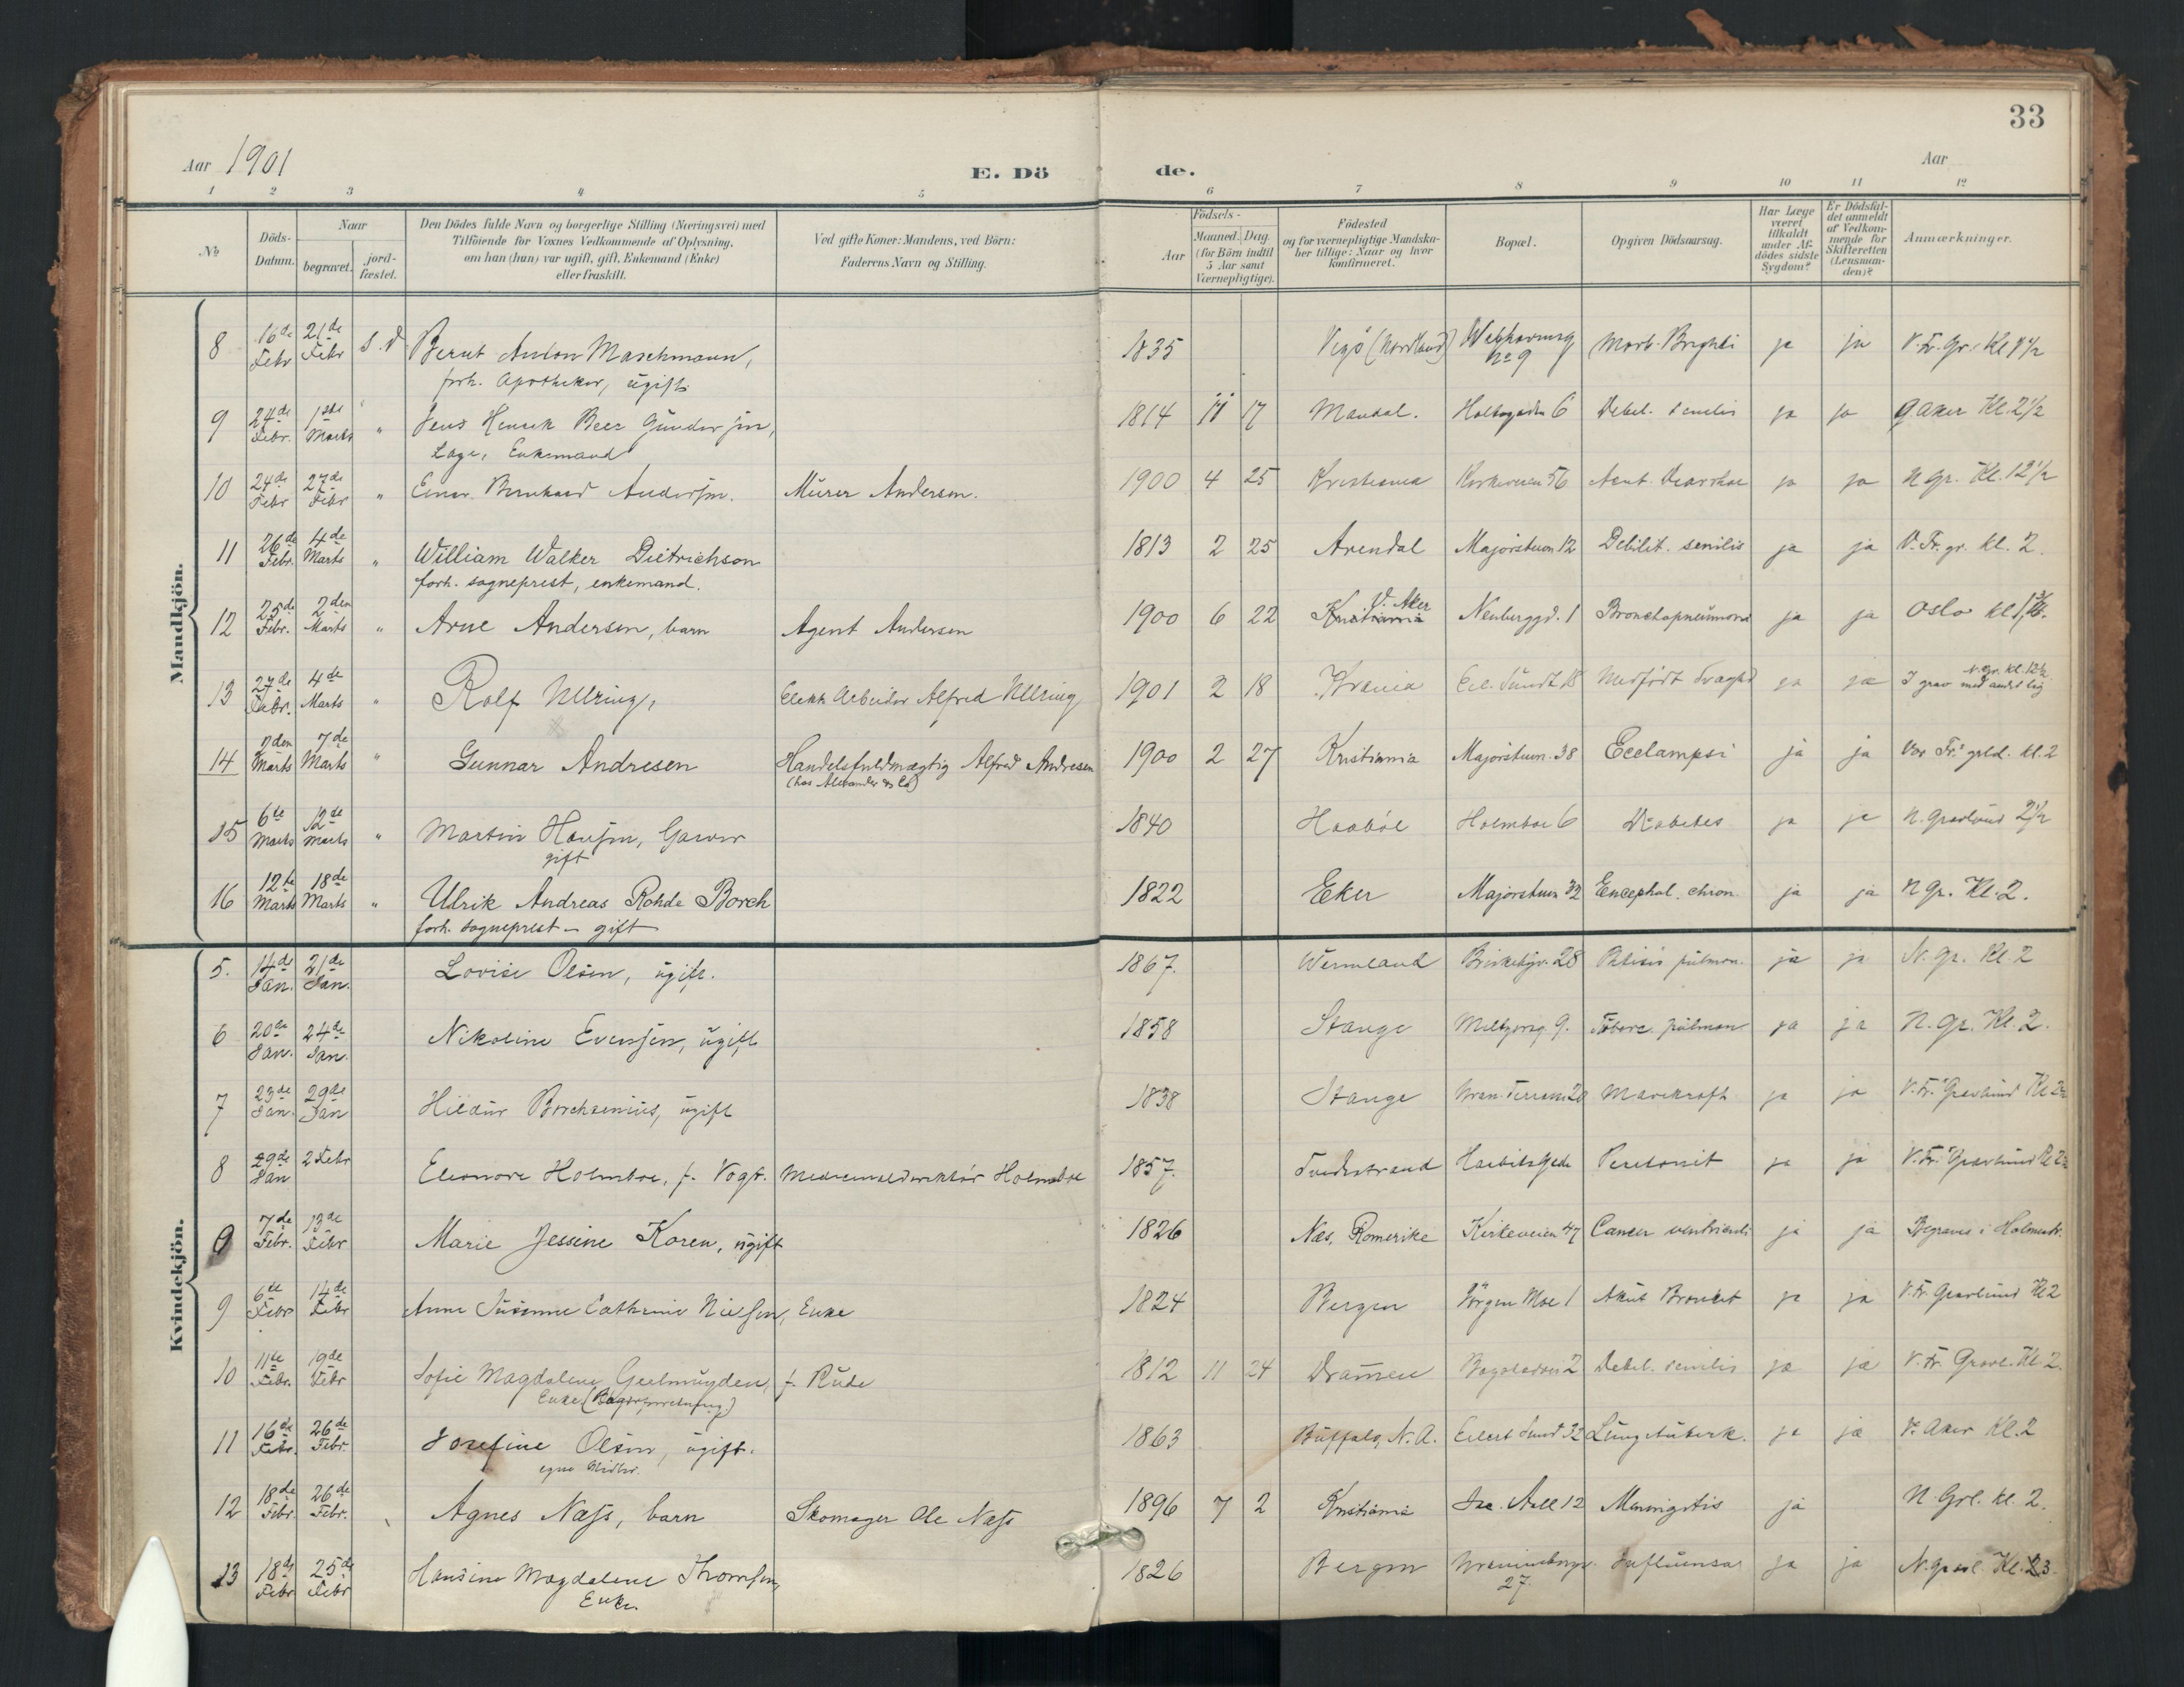 33
Aar 1901
E. Dö
de.
Aar
1 2 3 4 5 6 7 8 9 10 11 12
No
Döds-Datum.
Naar
begravet.
jord-fæstet.
Den Dödes fulde Navn og borgerlige Stilling (Næringsvei) med
Tilföiende for Voxnes Vedkommende af Oplysning,
om han (hun) var ugift, gift, Enkemand (Enke)
eller fraskilt.
Ved gifte Koner: Mandens, ved Börn:
Faderens Navn og Stilling.
Födsels-
Aar
Maaned. Dag
(for Börn indtil
5 Aar samt
Værnepligtige).
Födested
og for værnepligtige Mandska-
ber tillige: Naar og hvor
konfirmeret.
Bopæl.
Opgiven Dödsaarsag.
Har Læge
været
tilkaldt
under Af-
dödes sidste
Sygdom?
Er Dödsfal-
det anmeldt
af Vedkom-
mende for
Skifteretten
(Lensman-
den)?
Anmærkninger.
Mandkjön.
8 16de Febr 21de Febr s. d. Bernt Anton Maschmann, 1835 Vegö (Nordland) No 9 Morb. Brightii ja ja V. Fr. Gr. Kl
forh. Apotheker, ugift
9 24de Febr. 1ste Marts " Jens Henrik Beer Gundersen, 1814 17 Mandal. 6 Debil. senilis ja ja Aker Kl. 2 1/2
Læge, Enkemand
10 24de Febr 27de Febr " Einar Bernhard Andersen. Murer Andersen. 1900 4 25 Kristiania Kirkeveien 56 Acut. Diarrhoe ja ja N Gr. Kl. 12 1/2
11 26de Febr. 4de Marts " William Walker Dietrichson 1813 2 25 Arendal Majorstuen 12 Debilit. senilis ja ja V. Fr. gr. kl. 2.
forh. sogneprest, enkemand.
12 25de Febr. 2den Marts " Arne Andersen, barn Agent Andersen 1900 6 22 Kristiania V. Aker Neuberggd. 1 Bronchopneumoni ja ja Oslo kl
13 27de Febr. 4de Marts " Rolf Ullring, Elektr. Arbeider Alfred Ullring 1901 2 18 Krania Eil. Sundt 18 Medfödt Svaghed ja ja N. Gr. kl. 12 1/2
I grav med andet lig
14 Marts 7de Marts " Gunnar Andresen Handelsfuldmægtig Alfred Andresen 1900 2 27 Kristiania Majorstuen. 38 Eclampsi ja ja Vor Fr. grld. kl. 2
(hos Alexander & Co)
15 6te Marts 12de Marts " Martin Hansen, Garver 1840 Haaböl Holmboe 6 Diabetes ja ja N. Gravlund 2 1/2
gift
16 12te Marts 18de Marts " Ulrik Andreas Rohde Borch 1822 Eker Majorstuen 32 Encephal. chron. ja ja N Gr. Kl. 2.
forh. sogneprest – gift
Kvindekjön.
5. 14de Jan. 21de Jan. Lovise Olsen, ugift. 1867. Wermland Briskebyv. 28 Phtisis pulmon. ja ja N. Gr. Kl. 2
6 20de Jan. 24de Jan. Nikoline Evensen, ugift 1858 Stange Meltzersg. 9. Tuberc. pulmon ja ja N. Gr. Kl. 2.
7 23de Jan. 29de Jan Hildur Borchsenius, ugift 1838 Stange Uran. Terrasse 20 Marekraft ja ja V. Fr. Gravlund Kl 2
8 29de Jan 2 Febr Eleonore Holmboe, f. Vogt. Medicinaldirektör Holmboe 1857. Tvedestrand Peritonit ja ja V. Fr. Gravlund Kl 2
9 7de Febr. 13de Febr Marie Jessine Koren, ugift 1826 Næs, Romerike Kirkeveien 47 Cancer ventriculi ja ja Begraves i Holmestr.
9 6te Febr 14de Febr Anne Susanne Cathrine Nielsen, Enke 1824 Bergen Jörgen Moe 1 Akut Bronkit ja ja V. Fr. Gravlund Kl 2
10 11te Febr. 19de Febr Sofie Magdalene Geelmuyden, f. Rude 1812 11 24 Dramen Bogstadvei 2 Debil. senilis ja ja V. Fr. Gravl. Kl 2.
Enke
11 16de Febr. 26de Febr. Josefine Olsen, ugift. 1863 Buffalo, N. A. Eilert Sund 32 Lungetuberk. ja ja V. Aker Kl. 2
egne Midler.
12 18de Febr. 26de Febr. Agnes Næss, barn Skomager Ole Næss 1896 7 2 Kristiania Aall 12 Meningitis ja N. Grl. kl. 2.
13 18de Febr 25de Febr Hansine Magdalene Thomsen, 1826 Bergen Uranienborgv. 27 Influensa ja ja N. Gravl. Kl. 3.
Enke.